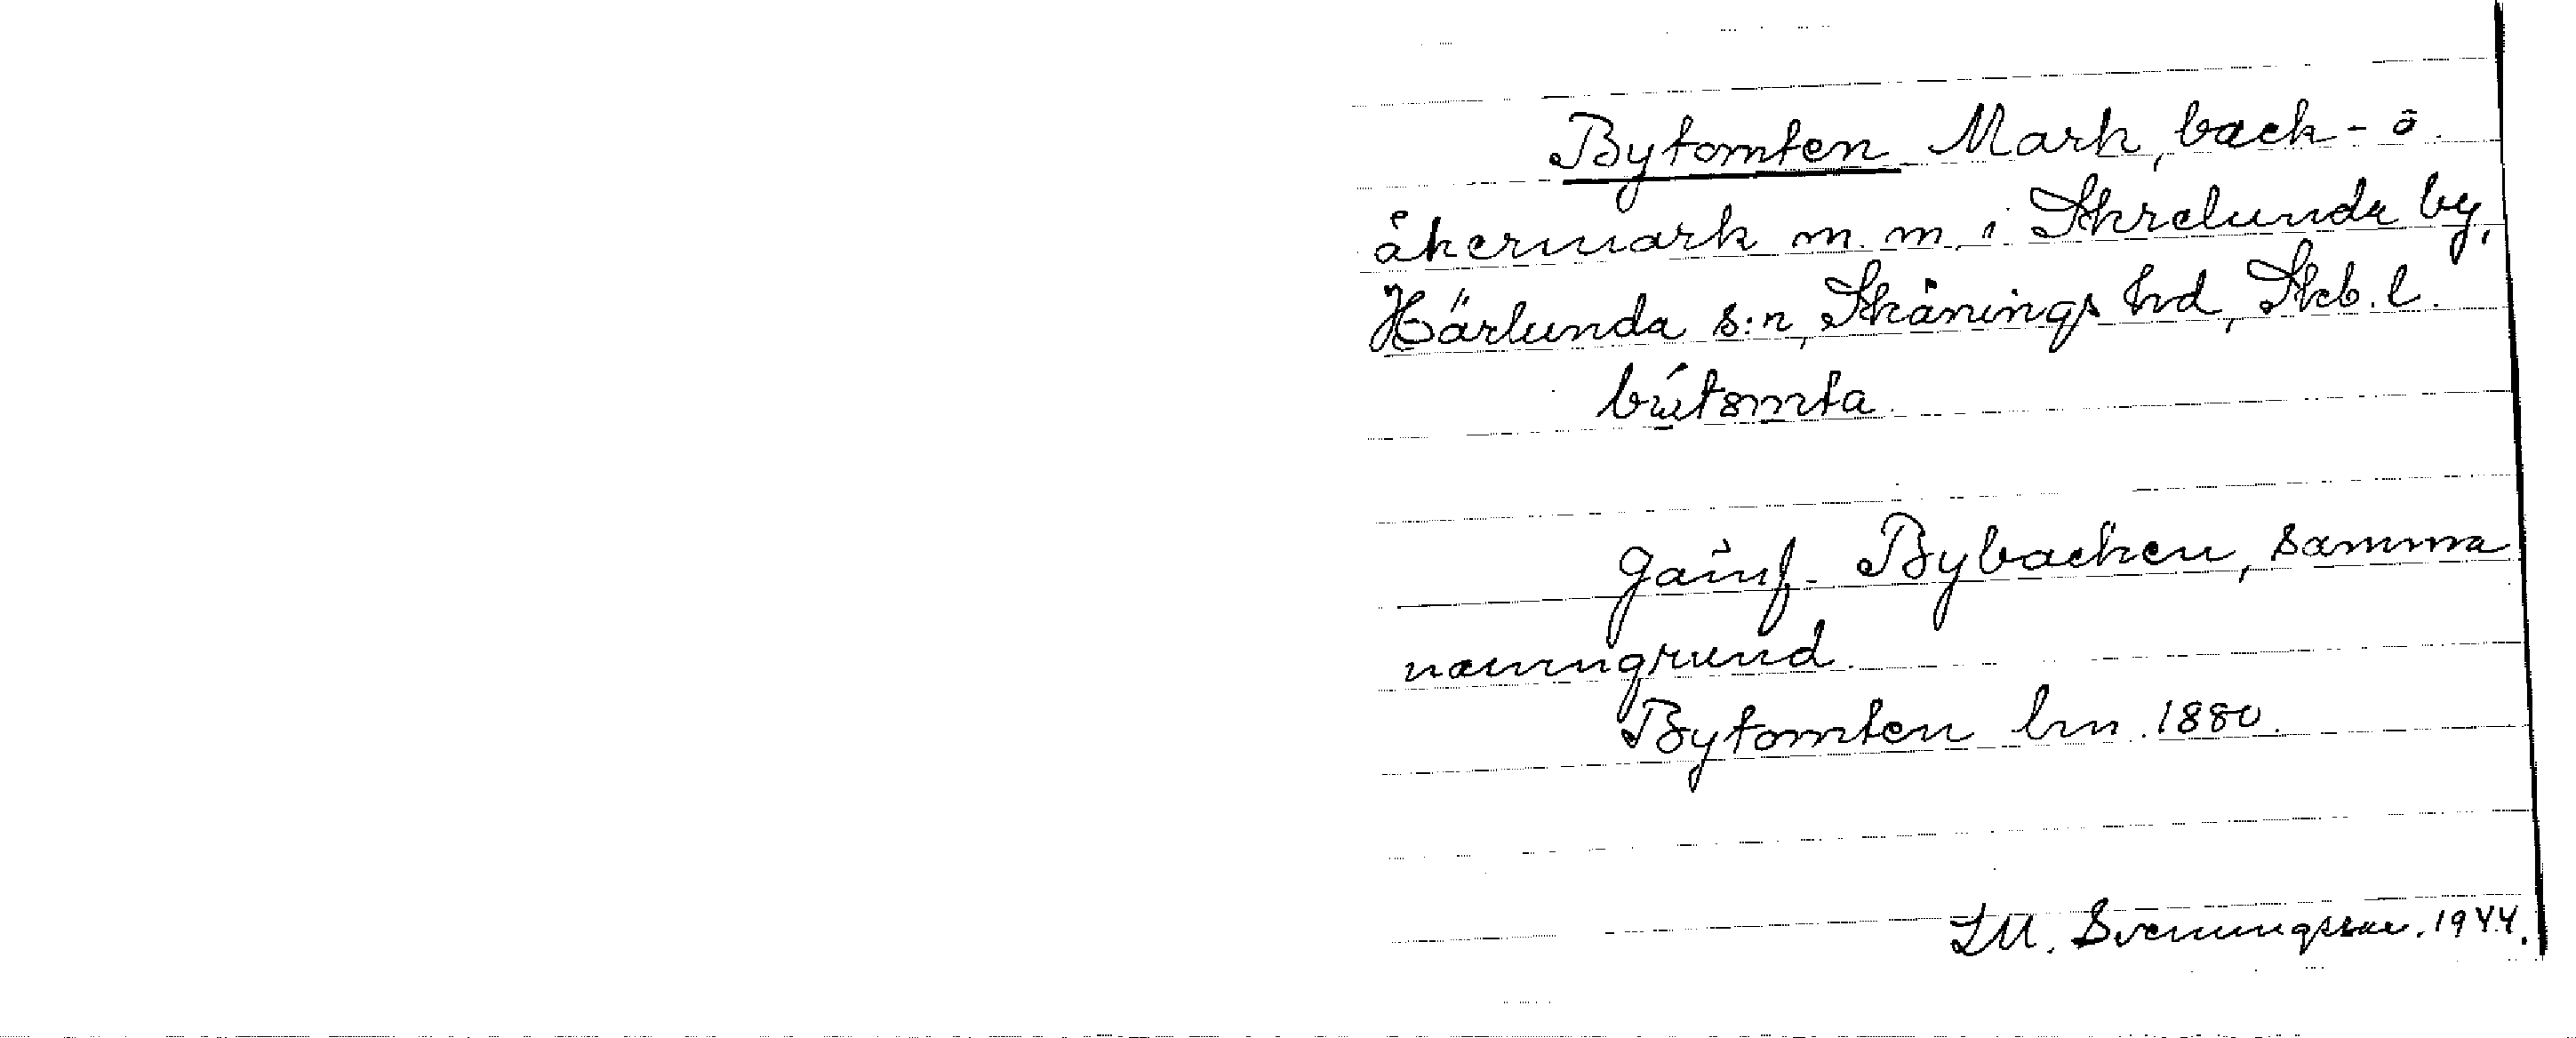 Bytomten Mark, back- o.
åkermark m.m. i Skrelunda by,
Härlunda s:n, Skånings hd, Skb. l.
bútomta
Jämf. Bybacken, samma
namngrund.
Bytomten lm 1880.
S.M. Svenungsson. 1944.